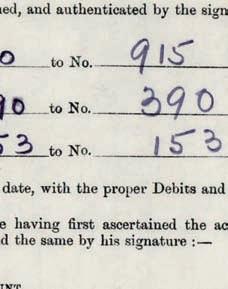 ned, and authenticated by the sign
0 to No. 915
90 to No. 390
53 to No. 153
date, with the proper Debits and
e having first ascertained the ac
d the same by his signature :—